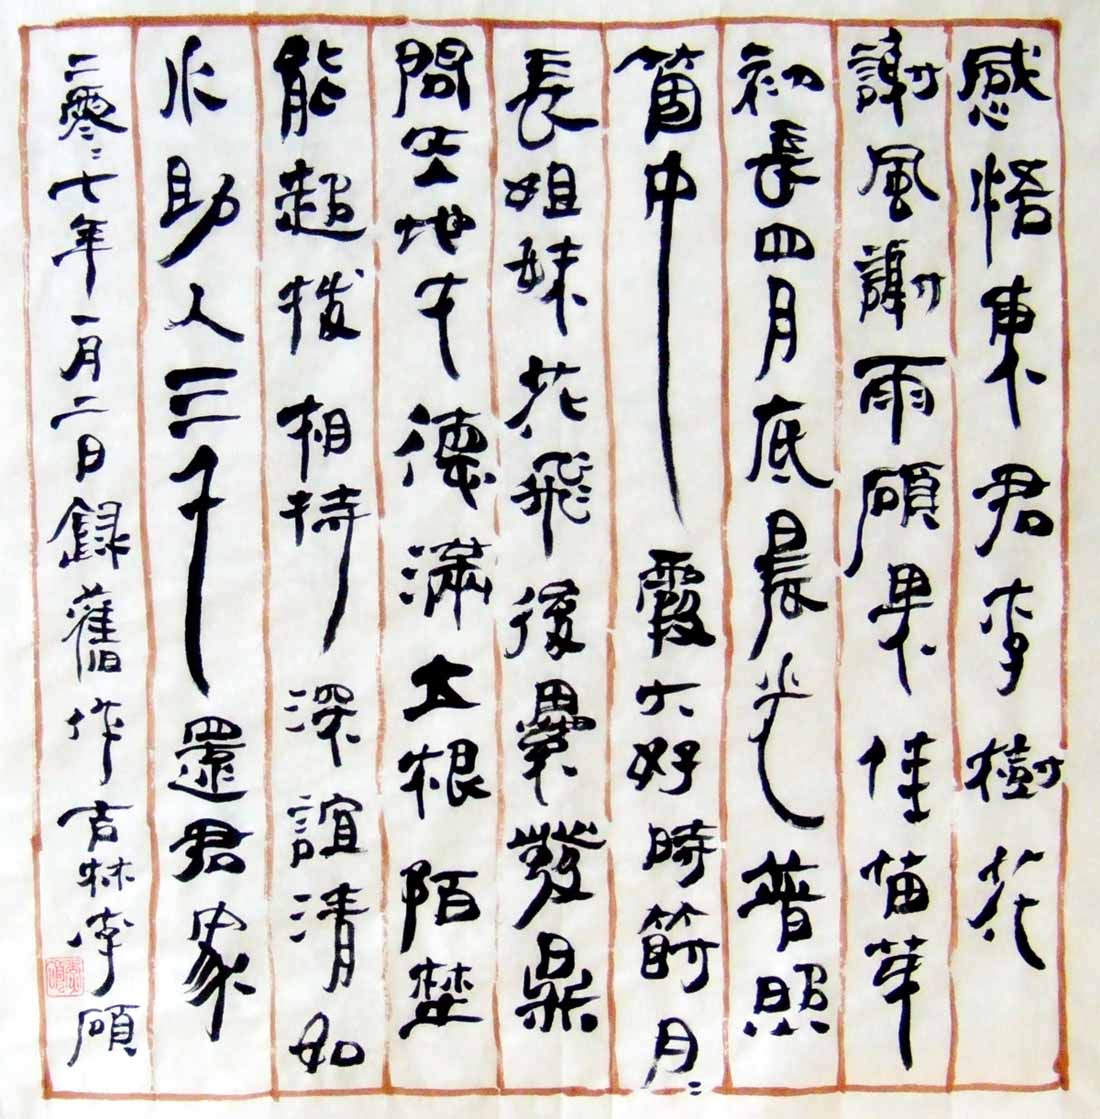 感悟東君李樹花
謝風謝雨碩果佳苗芽
初長四月底晨光普照
箇中霞六好時節月〻
長姐妹花飛後累累發鼎
間坐地有德滿土根陌楚
能超拔相持深誼清如
水助人三千還君家
二零〻七年一月二日錄舊作吉林李碩